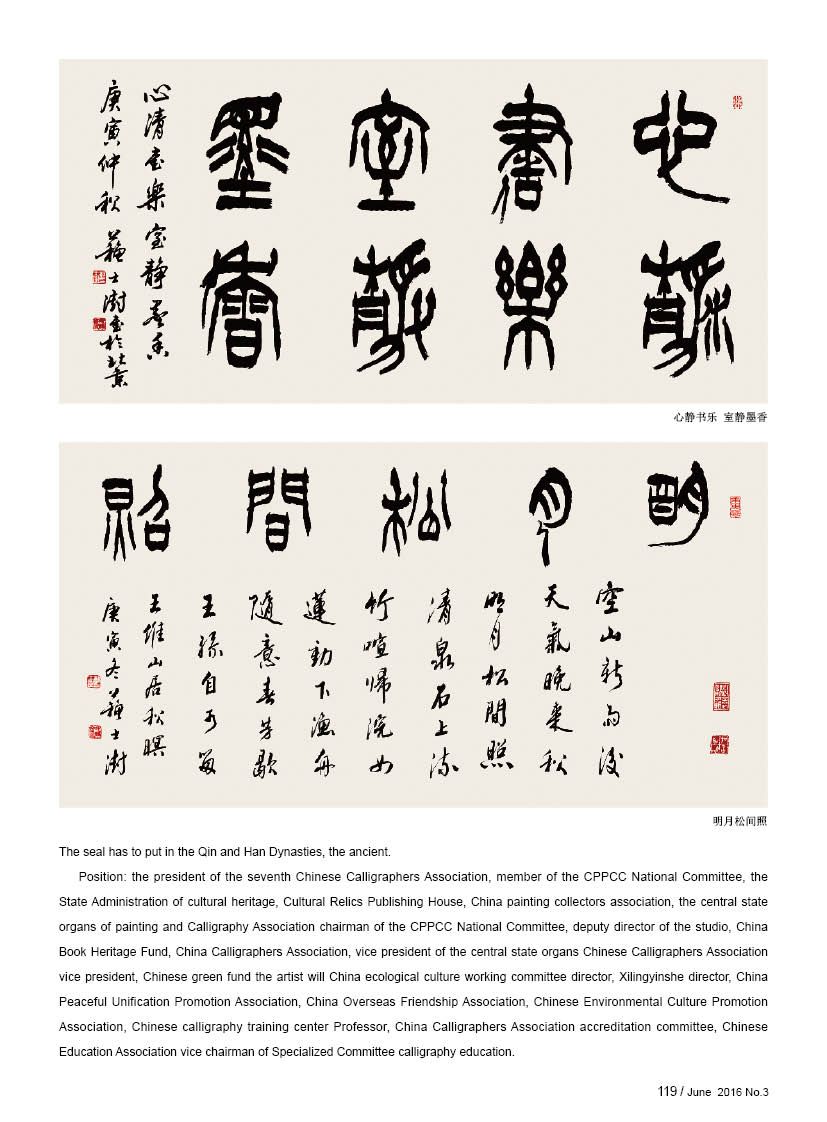 心靜
書樂
室靜
墨香
心清書樂室靜墨香
庚寅仲秋蘇士澍書於北京
心静书乐 室静墨香
明月松間照
空山新雨後
天氣晚來秋
明月松間照
清泉石上流
竹喧歸浣女
蓮動下漁舟
隨意春芳歇
王孫自可留
王維山居秋暝
庚寅冬蘇士澍
明月松间照
The seal has to put in the Qin and Han Dynasties, the ancient.
Position: the president of the seventh Chinese Calligraphers Association, member of the CPPCC National Committee, the
State Administration of cultural heritage, Cultural Relics Publishing House, China painting collectors association, the central state
organs of painting and Calligraphy Association chairman of the CPPCC National Committee, deputy director of the studio, China
Book Heritage Fund, China Calligraphers Association, vice president of the central state organs Chinese Calligraphers Association
vice president, Chinese green fund the artist will China ecological culture working committee director, Xilingyinshe director, China
Peaceful Unification Promotion Association, China Overseas Friendship Association, Chinese Environmental Culture Promotion
Association, Chinese calligraphy training center Professor, China Calligraphers Association accreditation committee, Chinese
Education Association vice chairman of Specialized Committee calligraphy education.
119 / June 2016 No.3